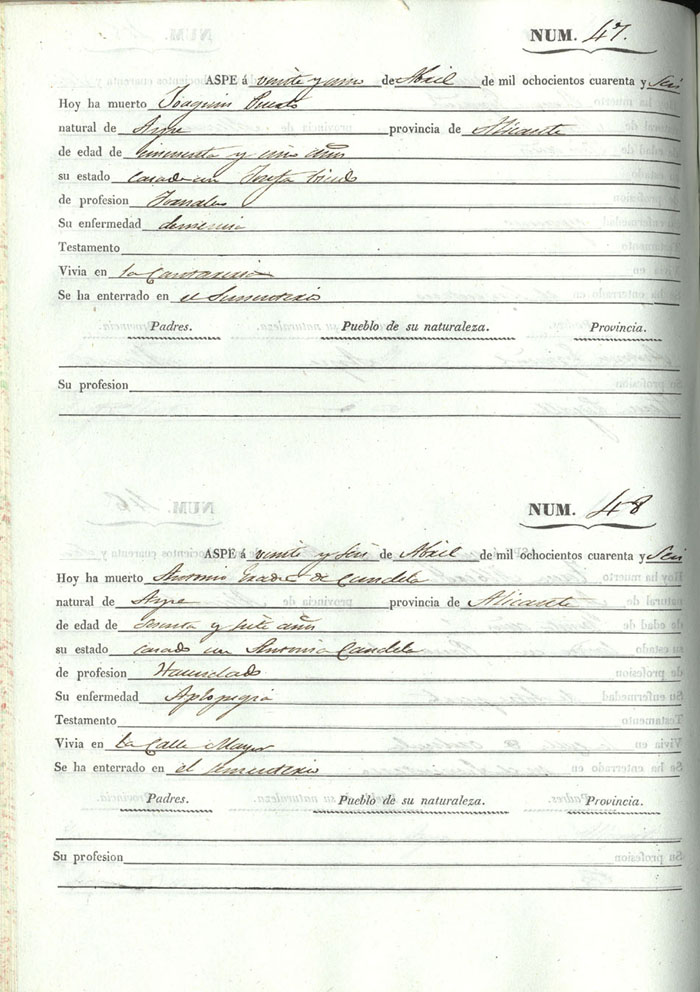 NUM. 47.
ASPE á veinte y uno de Abril de mil ochocientos cuarenta y Seis
Hoy ha muerto Joaquin
natural de Aspe provincia de Alicante
de edad de cincuenta y cinco años
su estado casado con Josefa
de profesion Jornalero
Su enfermedad demencia
Testamento
Vivia en la
Se ha enterrado en el Sementerio
Padres. Pueblo de su naturaleza. Provincia.
Su profesion
NUM. 48
ASPE á veinte y seis de Abril de mil ochocientos cuarenta y Seis
Hoy ha muerto Antonio de Candela
natural de Aspe provincia de Alicante
de edad de Sesenta y siete años
su estado casado con Antonia Candela
de profesion Hacendado
Su enfermedad
Testamento
Vivia en la Calle Mayor
Se ha enterrado en el sementerio
Padres. Pueblo de su naturaleza. Provincia.
Su profesion